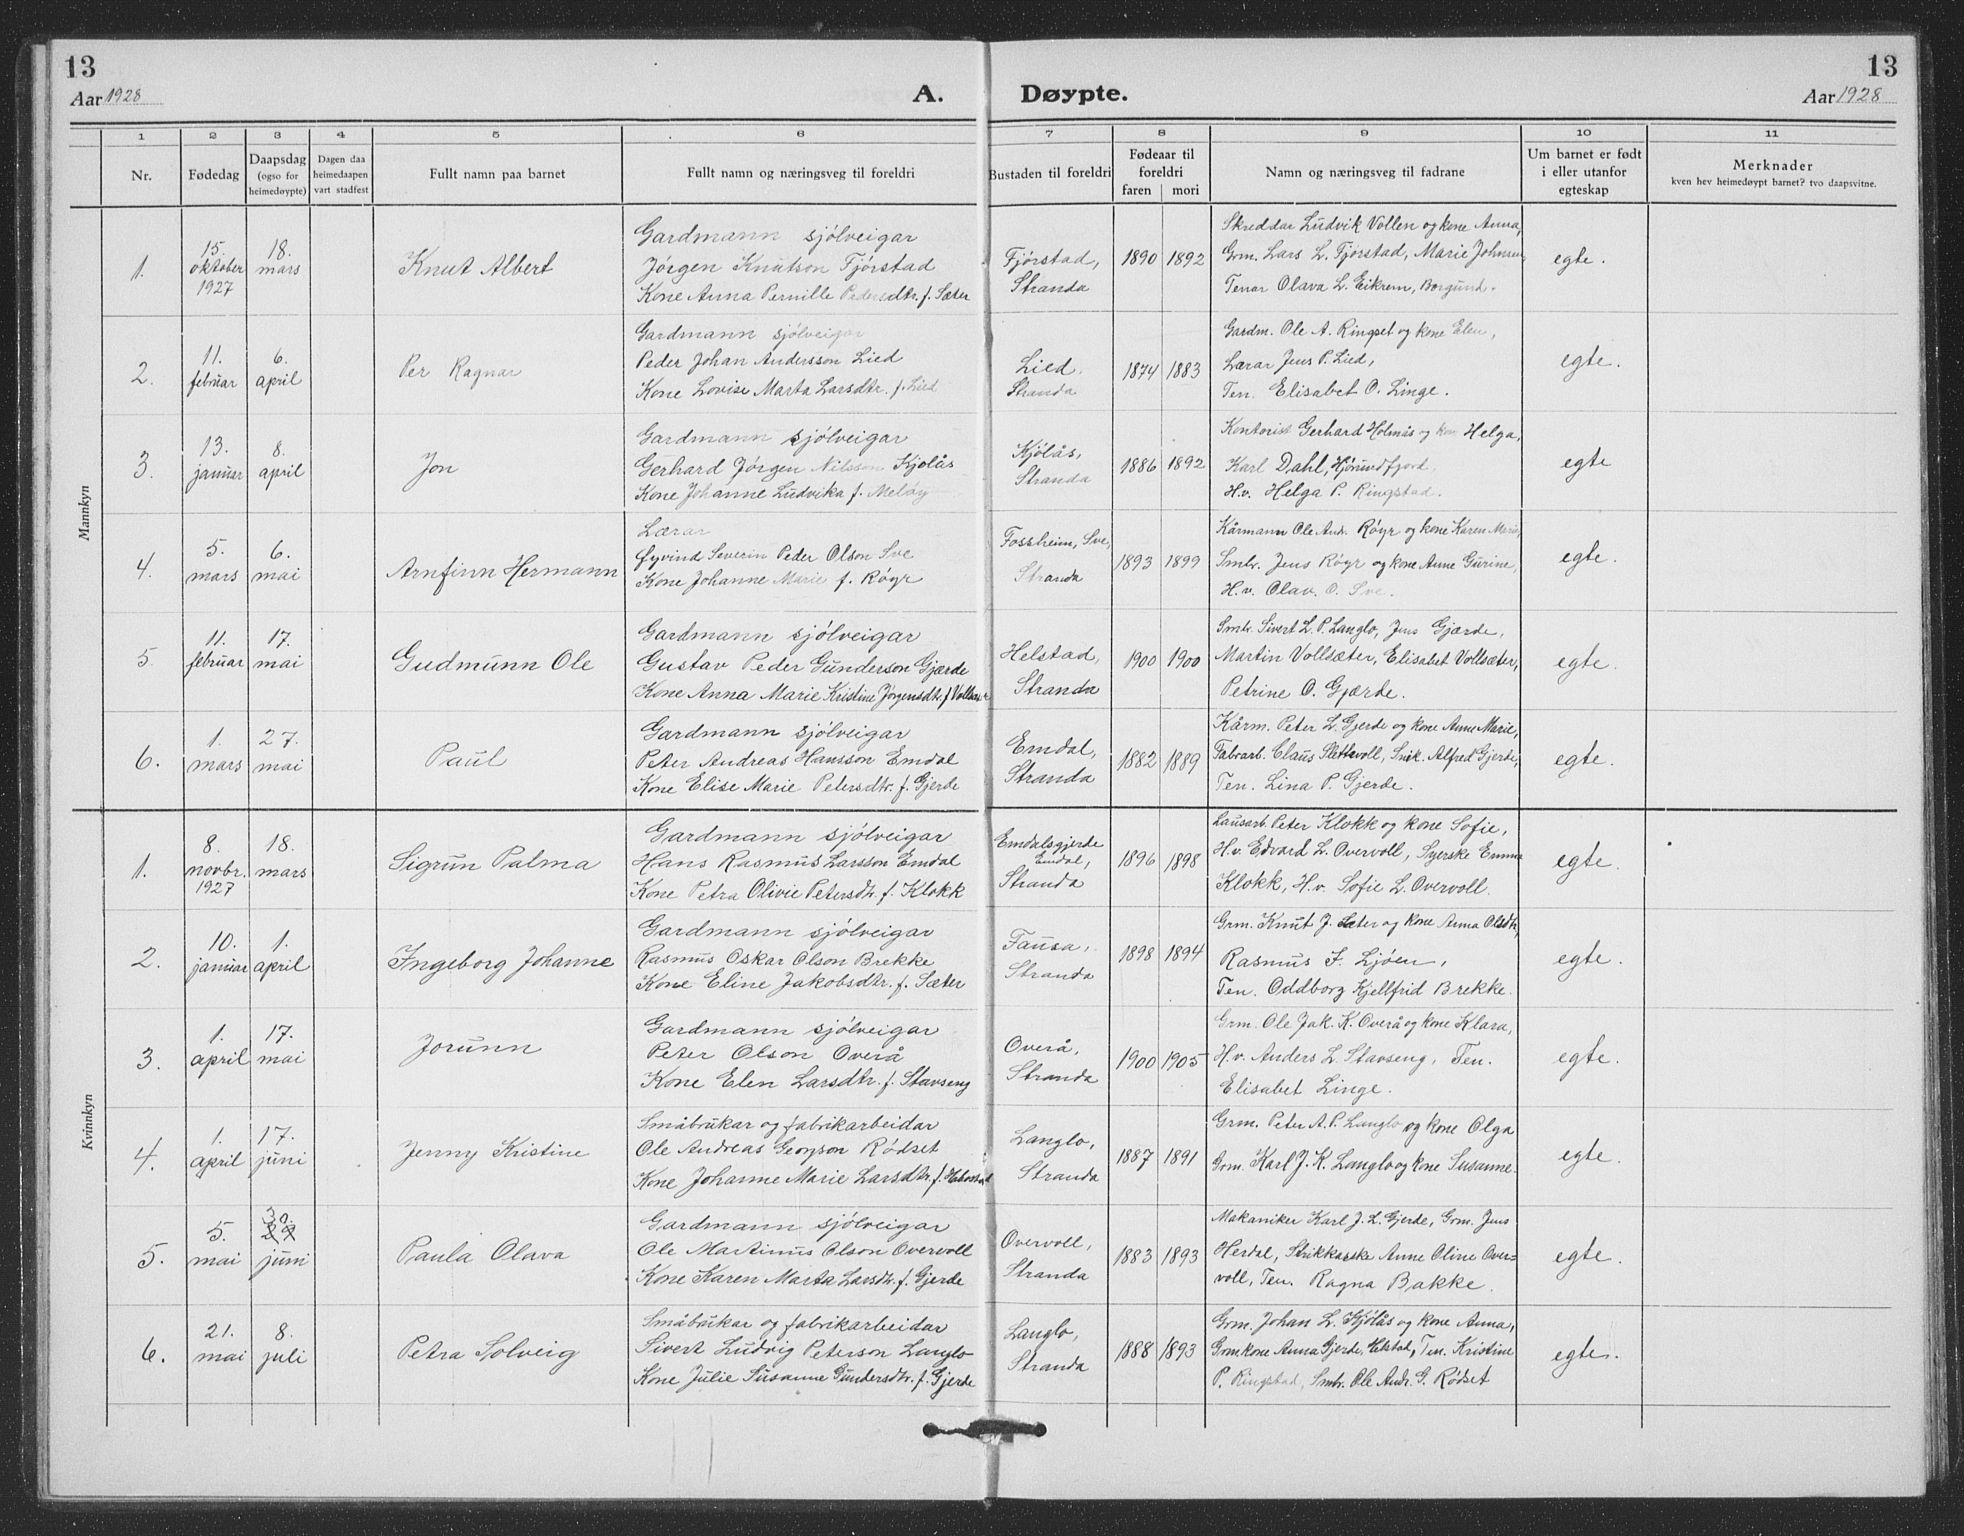 13
13
Aar 1928
A.
Døypte.
Aar 1928
1
2
3
4
5
6
7
8
9
10
11
Nr.
Fødedag
Daapsdag
(ogso for
heimedøypte)
Dagen daa
heimedaapen
vart stadfest
Fullt namn paa barnet
Fullt namn og næringsveg til foreldri
Bustaden til foreldri
Fødeaar til
foreldri
faren mori
Namn og næringsveg til fadrane
Um barnet er født
i eller utanfor
egteskap
Merknader
kven hev heimedøypt barnet? tvo daapsvitne.
Mannkyn
1.
15.
oktober
1927
18.
mars
Knut Albert
Gardmann sjølveigar
Jørgen Knutson Fjørstad
Kone Anna Pernille Pedersdtr. f. Sæter
Fjørstad,
Stranda
1890 1892
Skreddar Ludvik Vollen og kone Anna,
Grm. Lars L. Fjørstad, Marie Johnsen,
Tenar Olava L. Eikrem, Borgund.
egte.
2.
11.
februar
6.
april
Per Ragnar
Gardmann sjølveigar
Peder Johan Andersson Lied
Kone Lovise Marta Larsdtr. f. Lied
Lied,
Stranda
1874 1883
Gardm. Ole A. Ringset og kone Elen,
Lærar Jens P. Lied,
Ten. Elisabet O. Linge.
egte.
3.
13.
januar
8.
april
Jon
Gardmann sjølveigar
Gerhard Jørgen Nilsson Kjølås
Kone Johanne Ludvika f. Meløy
Kjølås,
Stranda
1886 1892
Kontorist Gerhard Holmås og kone Helga,
Karl Dahl, Hjørundfjord,
H.v. Helga P. Ringstad.
egte
4.
5.
mars
6.
mai
Arnfinn Hermann
Lærar
Øyvind Severin Peder Olson Sve
Kone Johanne Marie f. Røyr
Fossheim, Sve,
Stranda
1893 1899
Kårmann Ole And. Røyr og kone Karen Marie,
Smbr. Jens Røyr og kone Anne Gurine,
H.v. Olav. O. Sve.
egte.
5.
11.
februar
17.
mai
Gudmunn Ole
Gardmann sjølveigar
Gustav Peder Gunderson Gjærde
Kone Anna Marie Kristine Jørgensdtr. f. Vollsæter
Helstad,
Stranda
1900 1900
Smbr. Sivert L. P. Langlo, Jens Gjærde,
Martin Vollsæter, Elisabet Vollsæter,
Petrine O. Gjærde.
egte.
6.
1.
mars
27.
mai
Paul
Gardmann sjølveigar
Peter Andreas Hansson Emdal
Kone Elise Marie Petersdtr. f. Gjerde
Emdal,
Stranda
1882 1889
Kårm. Peter L. Gjerde og kone Anne Marie,
Fabrarb. Claus Slettavoll, Snik. Alfred Gjerde,
Ten. Lina P. Gjerde.
egte.
Kvinnkyn
1.
8.
novbr.
1927
18.
mars
Sigrun Palma
Gardmann sjølveigar
Hans Rasmus Larsson Emdal
Kone Petra Olivie Petersdtr. f. Klokk
Emdalsgjerde
Emdal,
Stranda
1896 1898
Lausarb. Peter Klokk og kone Sofie,
H.v. Edvard L. Overvoll, Syerske Emma
Klokk, H.v. Sofie L. Overvoll.
egte.
2.
10.
januar
1.
april
Ingeborg Johanne
Gardmann sjølveigar
Rasmus Oskar Olson Brekke
Kone Eline Jakobsdtr. f. Sæter
Fausa,
Stranda
1898 1894
Grm. Knut J. Sæter og kone Anna Olsdtr,
Rasmus F. Ljøen,
Ten. Oddborg Kjellfrid Brekke.
egte.
3.
1.
april
17.
mai
Jorunn
Gardmann sjølveigar
Peter Olson Overå
Kone Elen Larsdtr. f. Stavseng
Overå,
Stranda
1900 1905
Grm. Ole Jak. K. Overå og kone Klara,
H.v. Anders L. Stavseng, Ten.
Elisabet Linge.
egte.
4.
1.
april
17.
juni
Jenny Kristine
Småbrukar og fabrikarbeidar
Ole Andreas Georgson Rødset
Kone Johanne Marie Larsdtr. f.
Langlo,
Stranda
1887 1891
Grm. Peter A. P. Langlo og kone Olga
Grm. Karl J. K. Langlo og kone Susanne.
egte.
5.
5.
mai
30.
29
juni
Paula Olava
Gardmann sjølveigar
Ole Martinus Olson Overvoll
Kone Karen Marta Larsdtr. f. Gjerde
Overvoll,
Stranda
1883 1893
Makaniker Karl J. L. Gjerde, Grm. Jens
Herdal, Strikkerske Anne Oline Over=
voll, Ten. Ragna Bakke.
egte.
6.
21.
mai
8.
juli
Petra Solveig
Småbrukar og fabrikarbeidar
Sivert Ludvig Peterson Langlo
Kone Julie Susanne Gundersdtr. f. Gjerde
Langlo,
Stranda
1888 1893
Grm. Johan L. Kjølås og kone Anna,
Grmkone Anna Gjerde, Helstad, Ten. Kristine
P. Ringstad, Smbr. Ole Andr. G. Rødset
egte.